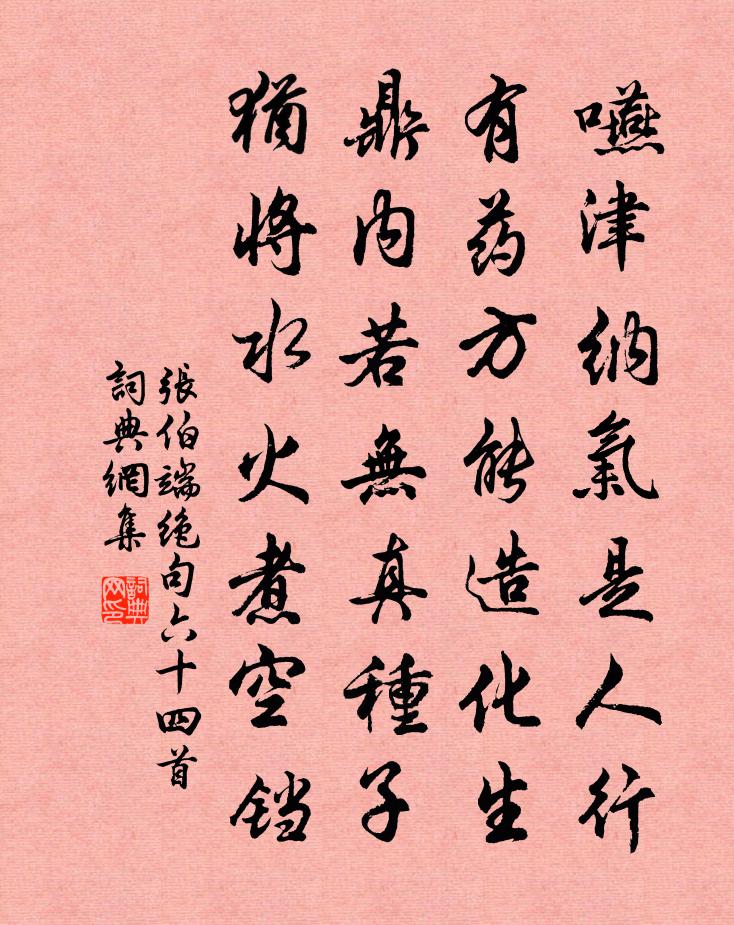 嚥津納氣是人行
有药方能造化生
鼎内若無真種子
猶將水火煮空铛
張伯端絶句六十四首
詞典網集
詞典網印